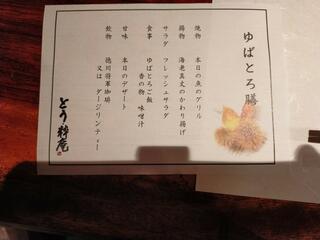 ゆばとろ膳
焼物 本日の魚のグリル
揚物 海老真丈のかわり揚げ
サラダ フレッシュサラダ
食事 ゆばとろご飯
香の物 味噌汁
甘味 本日のデザート
飲物 徳川将軍珈琲
又は ダージリンティー
とう粋庵